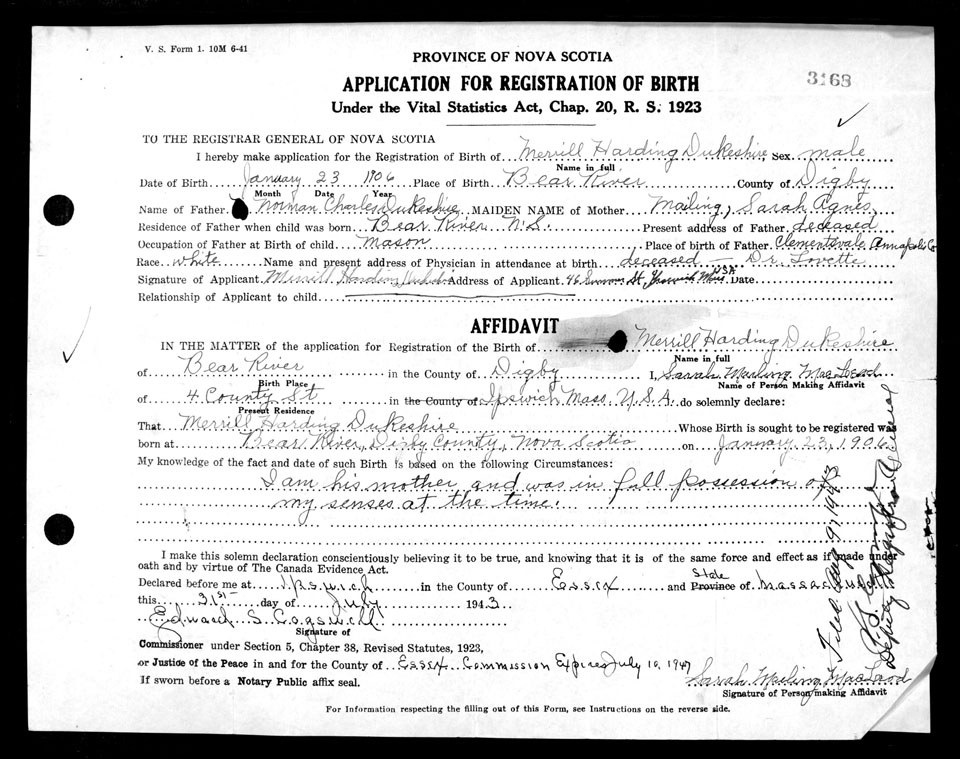 V. S. Form 1. 10M 6-41
PROVINCE OF NOVA SCOTIA
APPLICATION FOR REGISTRATION OF BIRTH
3168
Under the Vital Statistics Act, Chap. 20, R. S. 1923
TO THE REGISTRAR GENERAL OF NOVA SCOTIA
I hereby make application for the Registration of Birth of Merrill Harding Dukeshire Sex male
Name in full
Date of Birth January 23 1906 Place of Birth Bear River County of Digby
Month Date Year
Name of Father Norman Charles Dukeshire MAIDEN NAME of Mother Mailing, Sarah Agnes
Residence of Father when child was born Bear River N.S. Present address of Father deceased
Occupation of Father at Birth of child mason Place of birth of Father Clementsvale Annapolis Co
Race white Name and present address of Physician in attendance at birth deceased - Dr. Lovette
Signature of Applicant Merrill Harding Address of Applicant 46 St, Mass USA Date
Relationship of Applicant to child
AFFIDAVIT
IN THE MATTER of the application for Registration of the Birth of Merrill Harding Dukeshire
Name in full
of Bear River in the County of Digby I, Sarah Mailing MacLeod
Birth Place Name of Person Making Affidavit
of 4 County St in the County of Ipswich Mass. U.S.A. do solemnly declare:
Present Residence
That Merrill Harding Dukeshire Whose Birth is sought to be registered was
born at Bear River, Digby County, Nova Scotia on January 23, 1906
My knowledge of the fact and date of such Birth is based on the following Circumstances:
I am his mother and was in full possession of
my senses at the time.
I make this solemn declaration conscientiously believing it to be true, and knowing that it is of the same force and effect as if made under
oath and by virtue of The Canada Evidence Act.
State
Declared before me at Ipswich in the County of Essex and Province of Massachusetts
this 31st day of July 1943
Edward S. Cogswell
Signature of
Commissioner under Section 5, Chapter 38, Revised Statutes, 1923,
or Justice of the Peace in and for the County of Essex Commission Expires July 10, 1947
If sworn before a Notary Public affix seal.
Sarah Mailing MacLeod
Signature of Person making Affidavit
For Information respecting the filling out of this Form, see Instructions on the reverse side.
Filed Aug 9, 1943
Deputy Registrar General